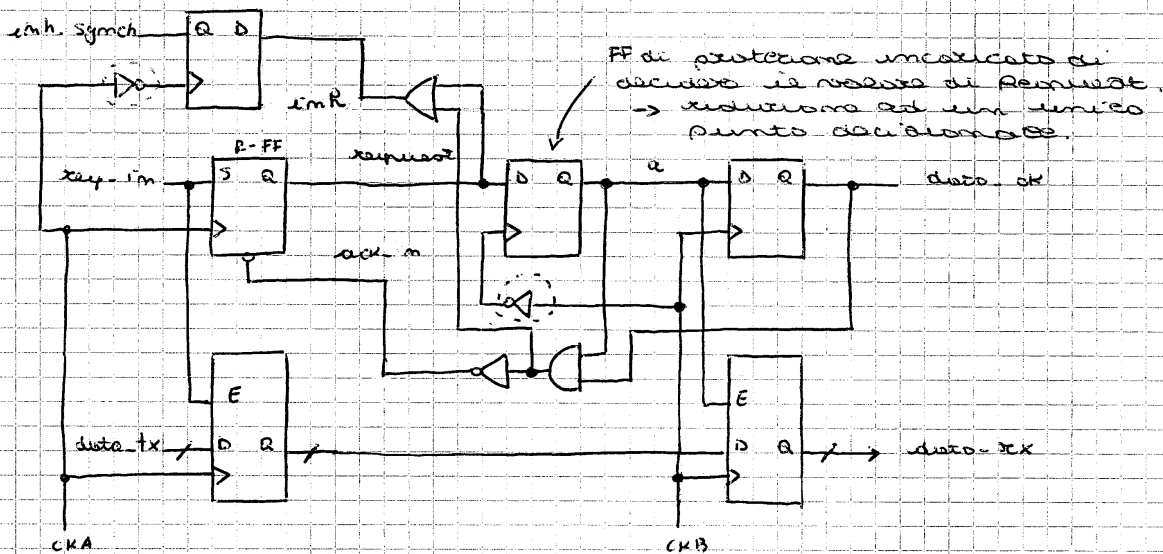 inh. synch
Q D
FF di protezione incaricato di
decidere il valore di Request.
→ riduzione ad un unico
punto decisionale.
inR
R-FF
request
req_in
S Q
D Q
a
D Q
data_ok
ack_n
E
E
data_tx
D Q
D Q
data_rx
CKA
CKB